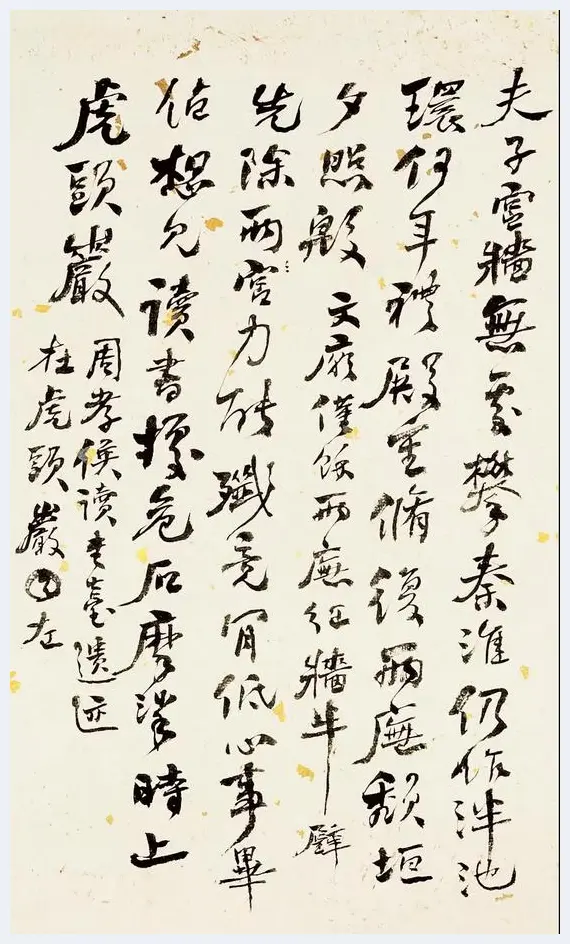 夫子宮牆無處攀秦淮仍作泮池
環何年禮殿重脩復兩廡頹垣
夕照殷 文廟僅餘兩廡紅牆半壁
先除兩害力能殲竟肯低心事畢
佔想見讀書據危石摩挲時上
虎頭巖 周孝侯讀書臺遺迹
在虎頭巖之左